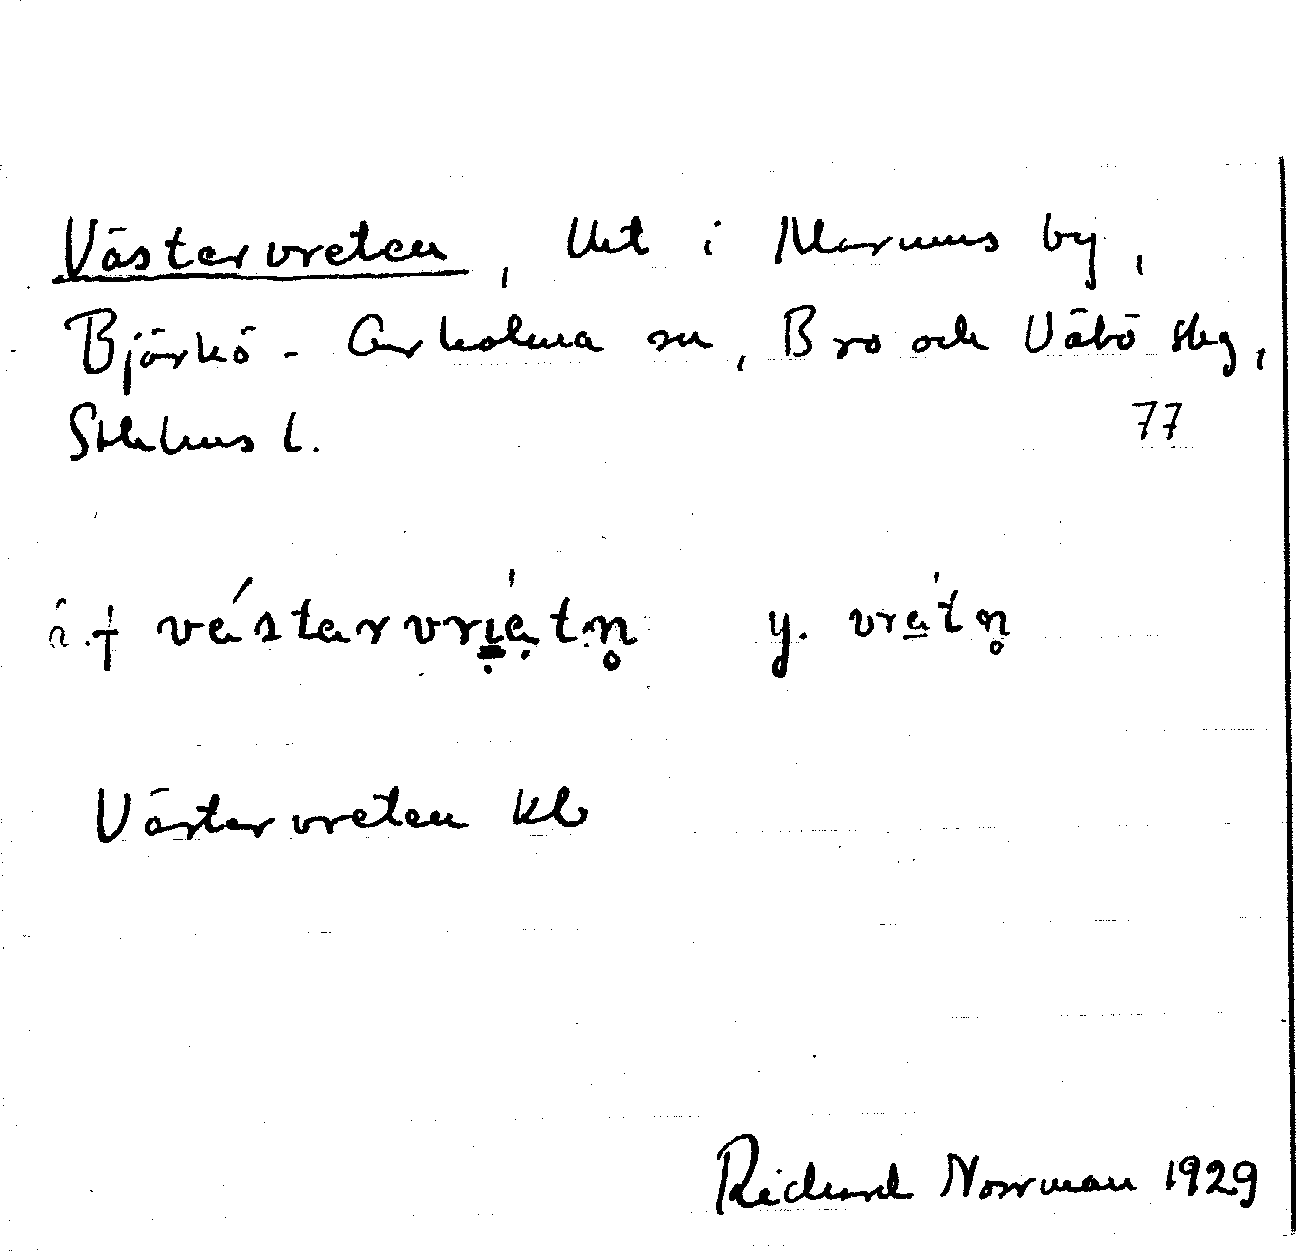 Västervreten, Urt i Marums by,
Björkö - Arholma sn, Bro och Väbö skg,
Sthlms l. 77
ä.f västarvriätn̥ y. vrätn̥
Västervreten kl
Richard Norrman 1929